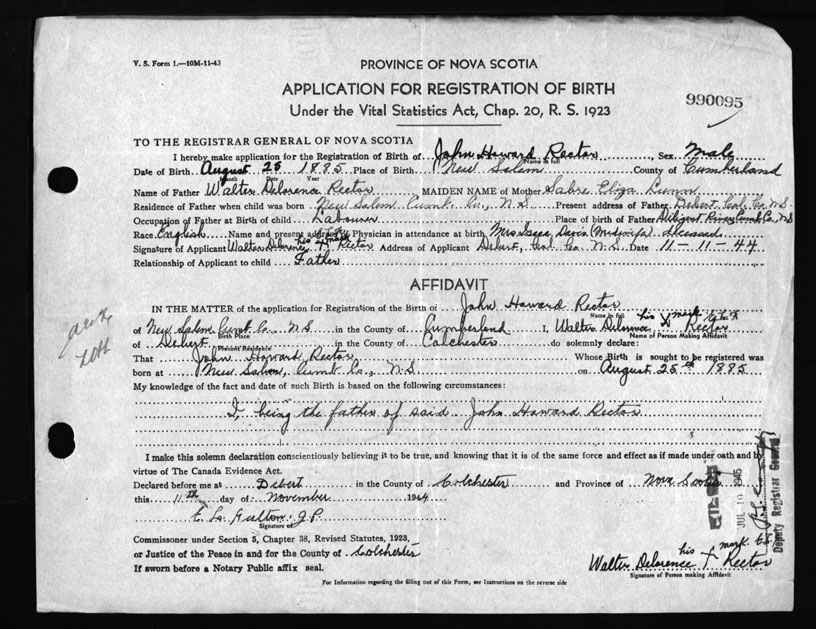 V. S. Form 1.—10M-11-43
PROVINCE OF NOVA SCOTIA
APPLICATION FOR REGISTRATION OF BIRTH
Under the Vital Statistics Act, Chap. 20, R. S. 1923
990095
TO THE REGISTRAR GENERAL OF NOVA SCOTIA
I hereby make application for the Registration of Birth of John Howard Rector, Sex Male
Name in full
Date of Birth August 25 1885 Place of Birth New Salem County of Cumberland
Month Date Year
Name of Father Walter Delorence Rector MAIDEN NAME of Mother Sabre Eliza Lunn
Residence of Father when child was born New Salem Cumb. Co., N.S. Present address of Father Debert Col. Co. N.S.
Occupation of Father at Birth of child Labourer Place of birth of Father Diligent River Cumb. Co. N.S.
Race English Name and present address of Physician in attendance at birth Mrs Isaac Davis (Midwife) deceased
Signature of Applicant Walter Delorence his X mark Rector Address of Applicant Debert, Col. Co. N.S. Date 11-11-44
Relationship of Applicant to child Father
AFFIDAVIT
IN THE MATTER of the application for Registration of the Birth of John Howard Rector
Name in full
of New Salem Cumb. Co. N.S. in the County of Cumberland I, Walter Delorence his X mark Rector
Birth Place Name of Person Making Affidavit
of Debert in the County of Colchester do solemnly declare:
Present Residence
That John Howard Rector Whose Birth is sought to be registered was
born at New Salem, Cumb. Co., N.S. on August 25th 1885
My knowledge of the fact and date of such Birth is based on the following circumstances:
I, being the father of said John Howard Rector
I make this solemn declaration conscientiously believing it to be true, and knowing that it is of the same force and effect as if made under oath and by
virtue of The Canada Evidence Act.
Declared before me at Debert in the County of Colchester and Province of Nova Scotia
this 11th day of November 1944
E. L. Fulton J.P.
Signature of
Commissoner under Section 5, Chapter 38, Revised Statutes, 1923,
or Justice of the Peace in and for the County of Colchester
If sworn before a Notary Public affix seal.
Walter Delorence his X mark Rector
Signature of Person making Affidavit
For Information regarding the filling out of this Form, see Instructions on the reverse side
JUL 19 1945
Deputy Registrar General